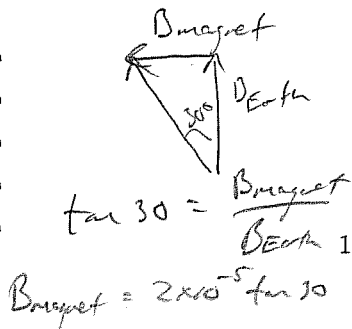 Bmagnet
BEarth
30°
tan 30 = Bmagnet / BEarth 1
Bmagnet = 2×10^-5 tan 30